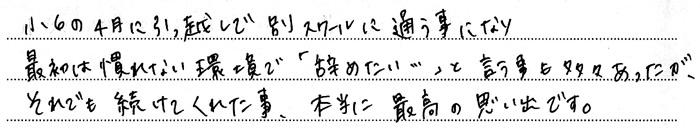 小6の4月に引っ越しで別スクールに通う事になり
最初は慣れない環境で「辞めたい…」と言う事も多々あったが、
それでも続けてくれた事、本当に最高の思い出です。